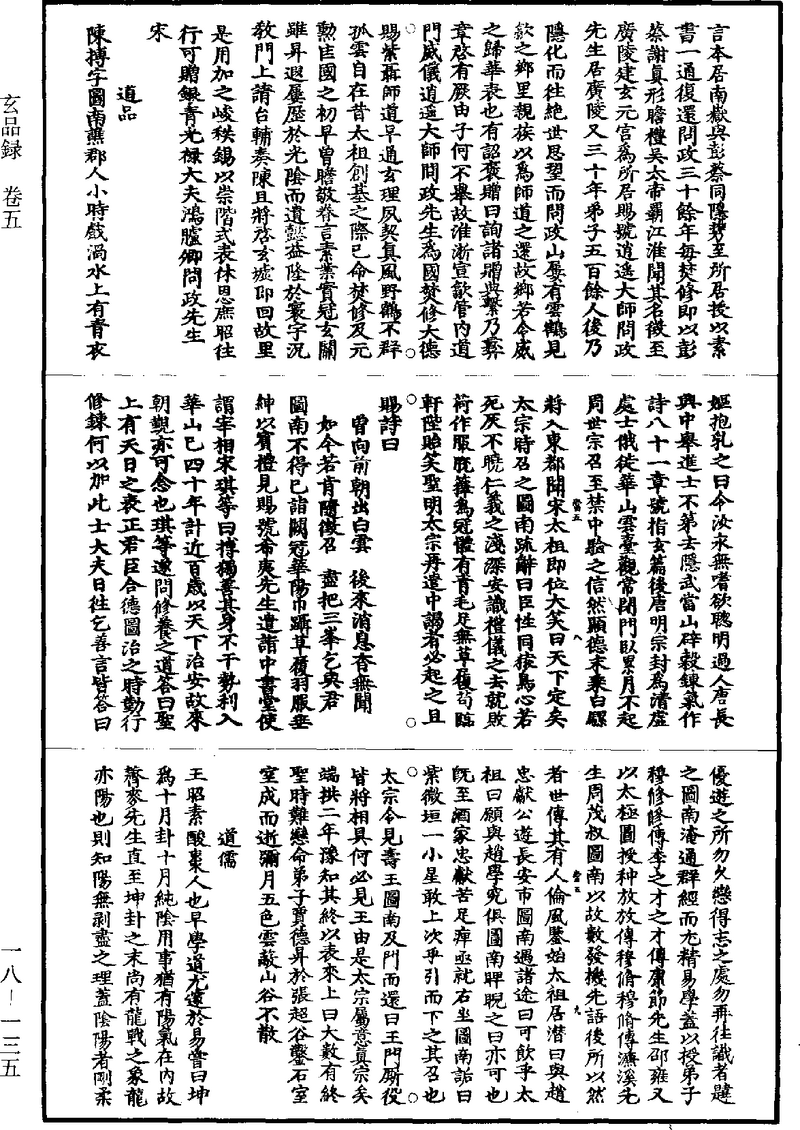 玄品録　卷五
言本居南嶽與彭蔡同隱甓至所居授以素
書一通復還問政三十餘年每焚修即以彭
蔡謝真形瞻禮吳太帝霸江淮聞其名徵至
廣陵建玄元宮為所居賜號逍遙大師問政
先生居廣陵又三十年弟子五百餘人後乃
隱化而往絕世思望而問政山屢有雲鶴見
歙之鄉里親族以為師道之還故鄉若令威
之歸華表也有詔褒贈曰詢諸贈典繫乃彝
章啓有厥由子何不舉故淮浙宣歙管內道
門威儀逍遙大師問政先生為國焚修大德
賜紫聶師道早通玄理夙契真風野鶴不群
孤雲自在昔太祖創基之際已命焚修及元
勳匡國之初早曾瞻敬眷言素業實冠玄關
雖昇遐屢歷於光陰而遺懿益隆於寰宇況
教門上請台輔奏陳且將啓玄墟卽回故里
是用加之峻秩錫以崇階式表休恩庶昭往
行可贈銀青光祿大夫鴻臚卿問政先生
宋
道品
陳摶字圖南譙郡人小時戲渦水上有青衣
嫗抱乳之曰令汝永無嗜欲聰明過人唐長
興中舉進士不第去隱武當山辟穀鍊氣作
詩八十一章號指玄篇後唐明宗封為清虛
處士俄徙華山雲臺觀常閉門臥累月不起
周世宗召至禁中驗之信然顯德末乘白騾
將入東都聞宋太祖即位大笑曰天下定矣
太宗時召之圖南疏辭曰臣性同猿鳥心若
死灰不曉仁義之淺深安識禮儀之去就敗
荷作服脫籜為冠體有青毛足無草履苟臨
軒陛貽笑聖明太宗再遣中謁者必起之且
賜詩曰
曾向前朝出白雲　後來消息杳無聞
如今若肯隨徵召　盡把三峯乞與君
圖南不得已詣闕冠華陽巾躡草履羽服垂
紳以賓禮見賜號希夷先生遣詣中書堂使
謂宰相宋琪等曰摶獨善其身不干勢利入
華山已四十年計近百歲以天下治安故來
朝覲亦可念也琪等遂問修養之道答曰聖
上有天日之表正君臣合德圖治之時勤行
修鍊何以加此士大夫日往乞善言皆答曰
優遊之所勿久戀得志之處勿再往識者韙
之圖南淹通群經而尤精易學蓋以授弟子
穆修修傳李之才之才傳康節先生邵雍又
以太極圖授种放放傳穆脩穆脩傳濂溪先
生周茂叔圖南以故數發機先語後所以然
者世傳其有人倫風鑒始太祖居潛日與趙
忠獻公遊長安市圖南遇諸途曰可飲乎太
祖曰願與趙學究俱圖南睥睨之曰亦可也
既至酒家忠獻苦足痺亟就右坐圖南詬曰
紫微垣一小星敢上次乎引而下之其召也
太宗令見壽王圖南及門而還曰王門厮役
皆將相具何必見王由是太宗屬意真宗矣
端拱二年豫知其終以表來上曰大數有終
聖時難戀命弟子賈德昇於張超谷鑿石室
室成而逝彌月五色雲蔽山谷不散
道儒
王昭素酸棗人也早學道尤邃於易嘗曰坤
為十月卦十月純陰用事猶有陽氣在內故
薺麥先生直至坤卦之末尚有龍戰之象龍
亦陽也則知陽無剥盡之理蓋陰陽者剛柔
一八－一三五